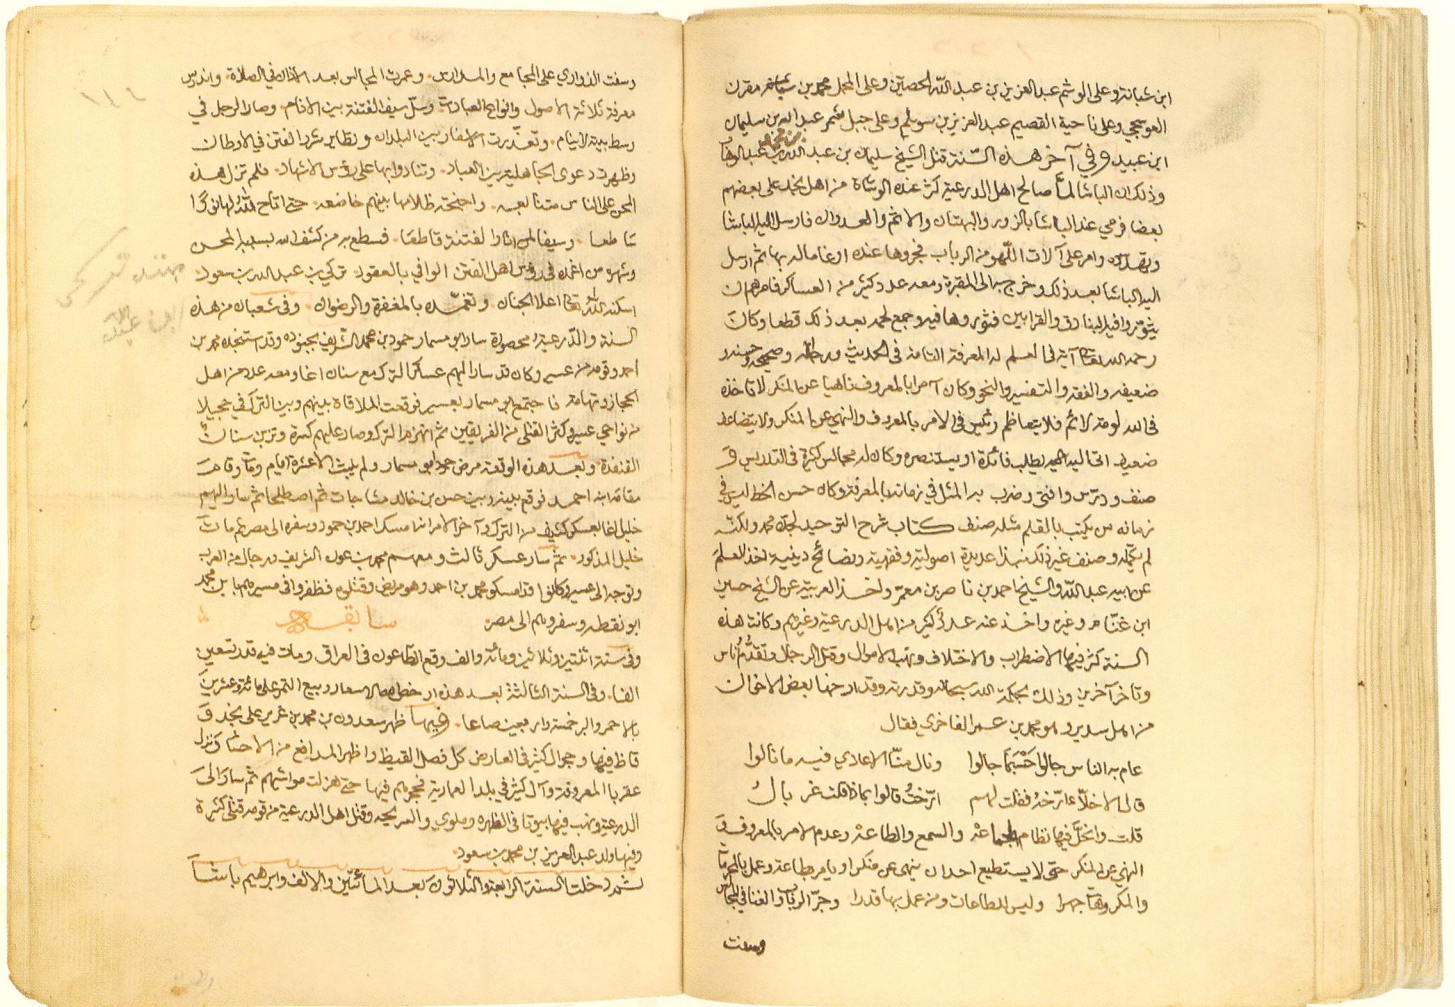 ابن شبانة وعلى الوشم عبد العزيز بن عبد الله الحصين وعلى المحمل محمد بن مقرن
العوسجي وعلى ناحية القصيم عبد العزيز بن سويلم وعلى جبل شمر عبد الله بن سليمان
ابن عبيد وفي آخر هذه السنة قتل الشيخ سليمان بن عبد الله بن محمد بن عبد الوهاب
وذلك ان الباشا لما صالح اهل الدرعية كثر عنده الوشاة من اهل نجد على بعضهم
بعضا فرمي عند الباشا بالزور والبهتان والاثم والعدوان فارسل اليه الباشا
وتهدده وامر على آلات اللهو من الرباب فجروها عنده ارغاما له بها ثم ارسل
اليه الباشا بعد ذلك وخرج به الى المقبرة ومعه عدد كثير من العساكر فامرهم ان
يثوروا فيه البنادق والقرابين فثوروها فيه وجمع لحمه بعد ذلك قطعا وكان
رحمه الله تعالى آية في العلم له المعرفة التامة في الحديث ورجاله وصحيحه وحسنه
وضعيفه والفقه والتفسير والنحو وكان آمرا بالمعروف ناهيا عن المنكر لا تاخذه
في الله لومة لائم فلا يتعاظم رئيس في الامر بالمعروف والنهي عن المنكر ولا يتضاعف
ضعيف اتى اليه يطلب فائدة او يستنصره وكان له مجالس كثيرة في التدريس و
صنف ودرس وافتى وضرب به المثل في زمانه بالمعرفة وكان حسن الخط ليس في
زمانه من يكتب بالقلم مثله صنف كتاب شرح التوحيد لجده محمد ولكنه
لم يكمله وصنف غير ذلك نبذا عديدة اصولية وفقهية ونصائح دينية اخذ العلم
عن ابيه عبد الله والشيخ احمد بن ناصر بن معمر واخذ العربية عن الشيخ حسين
ابن غنام وغيره واخذ عنه عدد كثير من اهل الدرعية وغيرهم وكانت هذه
السنة كثر فيها الاضطراب والاختلاف ونهب الاموال وقتل الرجال وتقدم ناس
وتاخر آخرين وذلك بحكمة الله سبحانه وقدرته وقد ارخها بعض الاخوان
من اهل سدير وهو محمد بن عمر الفاخري فقال
عام به الناس جالوا حسبما جالوا ونال منا الاعادي فيه ما نالوا
قال الاخلاء ارخه فقلت لهم ارخت قالوا بماذا قلت غربال
قلت وانحل فيها نظام الجماعة والسمع والطاعة وعدم الامر بالمعروف و
النهي عن المنكر حتى لا يستطيع احد ان ينهى عن منكر او يامر بطاعة وعمل بالمحرمات
والمكروهات جهرا وليس للطاعات ومن عمل بها قدرا وجر الرباب والغنا في المجالس
وسفت
١٤٤
وسفت الذواري على المجامع والمدارس وعمرت المجالس بعد الاذان في الصلاة واندرس
معرفة ثلاثة الاصول وانواع العبادات وسل سيف الفتنة بين الانام وصار الرجل في
وسط بيته لا ينام وتعذرت الاسفار بين البلدان وتطاير شرر الفتن في الاوطان
وظهرت دعوى الجاهلية بين العباد وتنادوا بها على رؤس الاشهاد فلم تزل هذه
المحن على الناس متتابعة واجنحة ظلامها بينهم خاضعه حتى اتاح الله لها نورا
ساطعا وسيفا لمن اثار الفتنة قاطعا فسطع به من كشف الله بسببه المحن
وشهره من اغمده في رؤس اهل الفتن الوافي بالعقود تركي بن عبد الله بن سعود
اسكنه الله تعالى اعلا الجنان وتغمده بالمغفرة والرضوان وفي شعبان من هذه
السنة والدرعية محصورة سار ابو مسمار حمود بن محمد الشريف بجنوده وقد استنجده محمد بن
احمد وقومه من عسير وكان قد سار اليهم عسكر الترك مع سنان اغا ومعه عدد من اهل
الحجاز وتهامة فاجتمع ابو مسمار بعسير فوقعت الملاقاة بينهم وبين الترك في حجيلا
من نواحي عسير وكثر القتلى من الفريقين ثم انهزم الترك وصار عليهم كسرة
القنفذة وبعد هذه الوقعة مرض حمود ابو مسمار ولم يلبث الا عشرة ايام ومات وقام
مقامه ابنه احمد فوقع بينه وبين حسن بن خالد مشاجات ثم اصطلحا ثم سار اليهم
خليل اغا بعسكر كثيف من الترك وآخر الامر انه امسك احمد بن حمود وسفره الى مصر ثم مات
خليل المذكور ثم سار عسكر ثالث ومعهم محمد بن عون الشريف ورجال من العرب
وتوجه الى عسير وكانوا قد امسكو محمد بن احمد وهو مريض وقتلوه فظفر وافى مسيرهم هذا بابن محمد
ابو نقطه وسفروهم الى مصر سابقة
وفي سنة اثنتين وثلاثين ومائة والف وقع الطاعون في العراق ومات فيه قدر تسعين
الفا وفي السنة الثالثة بعد هذه ارخصت الاسعار وبيع التمر على مائة وعشرين
بالاحمر والبر خمسة واربعين صاعا وفيها ظهر سعدون بن محمد بن غرير على نجد و
قاظ فيها وحجر آل كثير في العارض كل فصل القيظ واظهر المدافع من الاحسا ونزل
عقربا المعروفة وآل كثير في بلد العمارية فحجرهم فيها حتى هزلت مواشيهم ثم سار الى
الدرعية ونهب فيها بيوتا في الظهرة وملوي والسريحه وقتل اهل الدرعية من قومه قتلى كثيرة
وفيها ولد عبد العزيز بن محمد بن سعود
ثم دخلت السنة الرابعة والثلاثون بعد المائتين والالف وابراهيم باشا